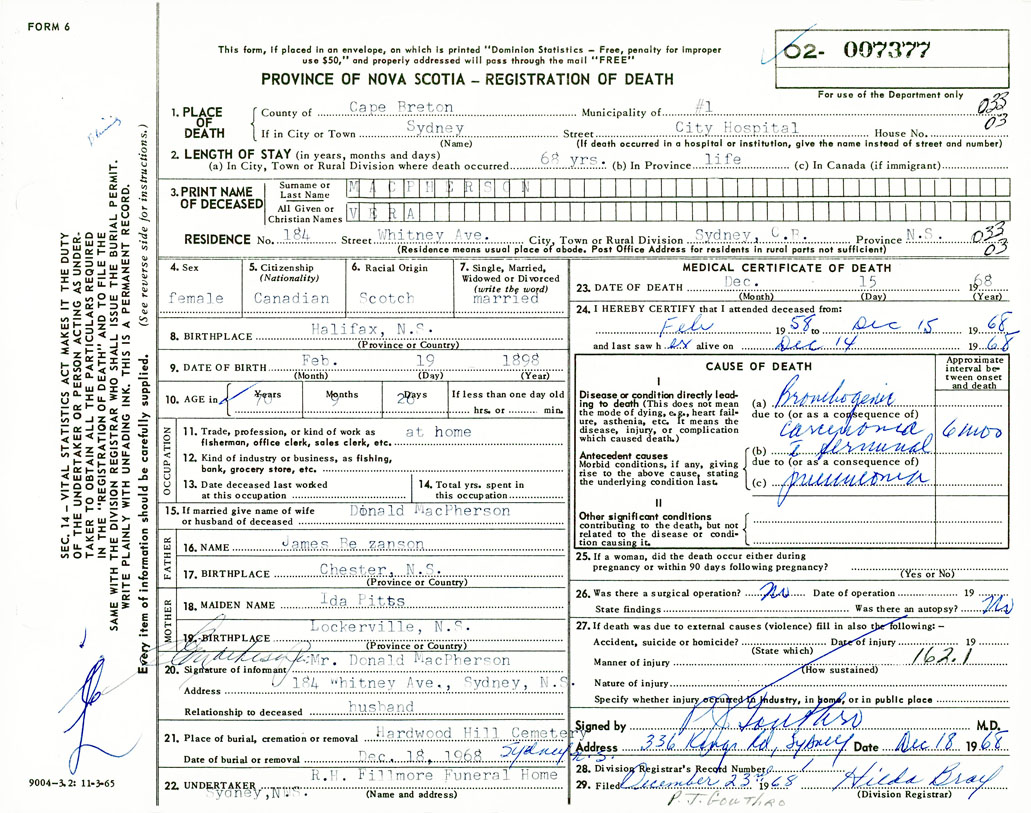 FORM 6
This form, if placed in an envelope, on which is printed "Dominion Statistics – Free, penalty for improper
use $50," and properly addressed will pass through the mail "FREE"
PROVINCE OF NOVA SCOTIA – REGISTRATION OF DEATH
02- 007377
For use of the Department only
1. PLACE OF DEATH County of Cape Breton Municipality of #1 033
If in City or Town Sydney Street City Hospital House No. 03
(Name) (If death occurred in a hospital or institution, give the name instead of street and number)
2. LENGTH OF STAY (in years, months and days)
(a) In City, Town or Rural Division where death occurred 68 yrs. (b) In Province life (c) In Canada (if immigrant)
3. PRINT NAME OF DECEASED Surname or Last Name MACPHERSON
All Given or Christian Names VERA
RESIDENCE No. 184 Street Whitney Ave. City, Town or Rural Division Sydney, C.B. Province N.S. 033
(Residence means usual place of abode. Post Office Address for residents in rural parts not sufficient) 03
4. Sex
female
5. Citizenship
(Nationality)
Canadian
6. Racial Origin
Scotch
7. Single, Married,
Widowed or Divorced
(write the word)
married
8. BIRTHPLACE Halifax, N.S.
(Province or Country)
9. DATE OF BIRTH Feb. 19 1898
(Month) (Day) (Year)
10. AGE in Years Months Days If less than one day old
70 9 26 hrs. or min.
OCCUPATION
11. Trade, profession, or kind of work as
fisherman, office clerk, sales clerk, etc. at home
12. Kind of industry or business, as fishing,
bank, grocery store, etc.
13. Date deceased last worked
at this occupation
14. Total yrs. spent in
this occupation
15. If married give name of wife
or husband of deceased Donald MacPherson
FATHER
16. NAME James Be zanson
17. BIRTHPLACE Chester, N.S.
(Province or Country)
MOTHER
18. MAIDEN NAME Ida Pitts
19. BIRTHPLACE Lockerville, N.S.
(Province or Country)
Mr. Donald MacPherson
20. Signature of informant
Address 184 Whitney Ave., Sydney, N.S.
Relationship to deceased husband
21. Place of burial, cremation or removal Hardwood Hill Cemetery
Date of burial or removal Dec. 18, 1968 Sydney N.S.
22. UNDERTAKER R.H. Fillmore Funeral Home
Sydney, N.S. (Name and address)
MEDICAL CERTIFICATE OF DEATH
23. DATE OF DEATH Dec. 15 1968
(Month) (Day) (Year)
24. I HEREBY CERTIFY that I attended deceased from:
Feb 1958 to Dec 15 1968
and last saw her alive on Dec 14 1968
CAUSE OF DEATH
Approximate interval between onset and death
I
Disease or condition directly leading to death (This does not mean the mode of dying, e.g., heart failure, asthenia, etc. It means the disease, injury, or complication which caused death.)
(a) Bronchogenic
due to (or as a consequence of)
carcinoma 6 mos
Antecedent causes
Morbid conditions, if any, giving rise to the above cause, stating the underlying condition last.
(b) c terminal
due to (or as a consequence of)
(c) pneumonia
II
Other significant conditions contributing to the death, but not related to the disease or condition causing it.
25. If a woman, did the death occur either during
pregnancy or within 90 days following pregnancy?
(Yes or No)
26. Was there a surgical operation? No Date of operation 19
State findings Was there an autopsy? No
27. If death was due to external causes (violence) fill in also the following: –
Accident, suicide or homicide? Date of injury 19
(State which)
Manner of injury 162.1
(How sustained)
Nature of injury
Specify whether injury occurred in industry, in home, or in public place
Signed by P J Gouthro M.D.
Address 336 Kings Rd, Sydney Date Dec 18 1968
28. Division Registrar's Record Number
29. Filed December 23rd 1968 Hilda Bray
(Division Registrar)
P. J. GOUTHRO
SEC. 14 – VITAL STATISTICS ACT MAKES IT THE DUTY
OF THE UNDERTAKER OR PERSON ACTING AS UNDER-
TAKER TO OBTAIN ALL THE PARTICULARS REQUIRED
IN THE "REGISTRATION OF DEATH" AND TO FILE THE
SAME WITH THE DIVISION REGISTRAR WHO SHALL ISSUE THE BURIAL PERMIT.
WRITE PLAINLY WITH UNFADING INK. THIS IS A PERMANENT RECORD.
Every item of information should be carefully supplied. (See reverse side for instructions.)
9004–3.2: 11-3-65